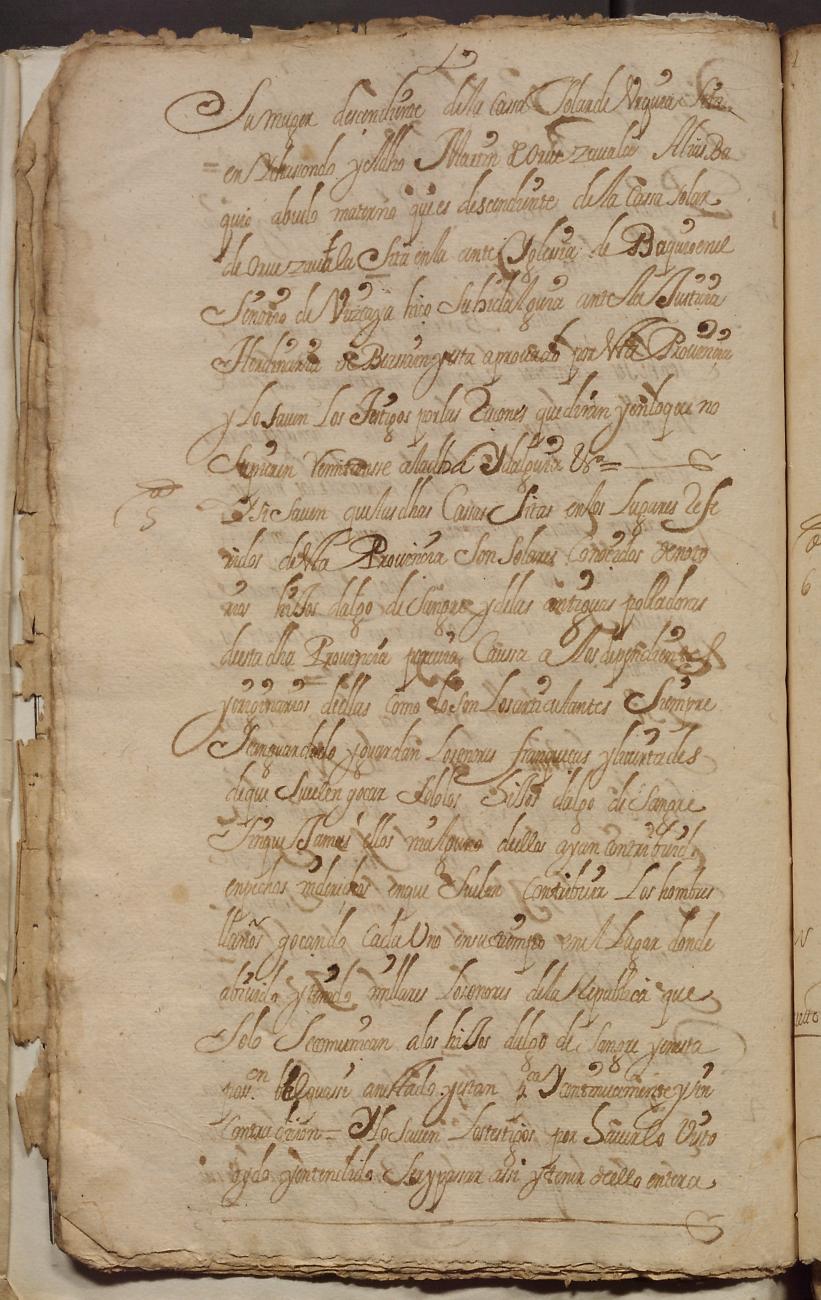 Su muger descendiente de lla Cassa Solar de Urquia Sita
en y el dho Martin de Oruezavala Aluis Ba
quio abuelo materno que es descendiente de lla Cassa Solar
de Oruezavala Sita en la ante Yglessia de Baquio en el
Señorio de Vizcaya hiço Su hidalguia ante lla Justicia
Hordinaria de y esta aprovado por Vtta Provincia
y Lo Saven Los Testigos por las Raçones que diran y en lo que no
Supieren Remitansse a lla dha Ydalguia &ª =
5
Si Saven que llas dhas Cassas Sitas en los Lugares Refe
ridos de Vtta Provincia Son Solares Conocidos de noto
rios hiJos dalgo de Sangre y de llas antiguas polladoras
de esta dha Provincia por cuia Caussa a llos dependientes
y originarios de ellas como lo Son Los articulantes Siempre
Sean guardado y guardan Los onores franqueças y livertades
de que Suelen goçar Solo los hiJos dalgo de Sangre
Sin que Jamas ellos ni alguno de ellos ayan contribuido
en pechos ni derechos en que Suelen Contribuir Los hombres
llanos goçando Cada Uno en su tiempo en el Lugar donde
a bivido y tenido millares Los onores de la Republica que
Solo Se comunican a los hiJos dalgo de Sangre y en esta
poss.on an estado y estan y continuamente y sin
Contradicion = Y lo Saven Los testigos por Haverlo Visto
oydo y entendido Ser y passar assi y tener de ello entera